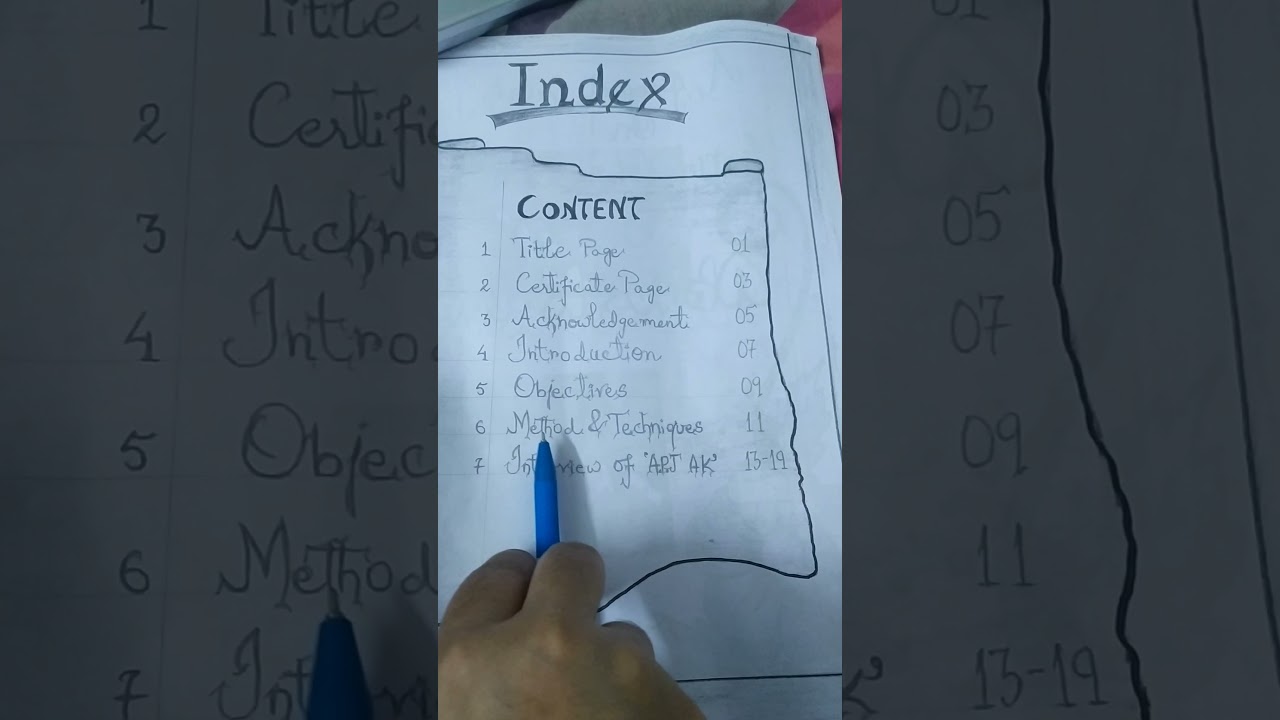 Index
CONTENT
1 Title Page 01
2 Certificate Page 03
3 Acknowledgement 05
4 Introduction 07
5 Objectives 09
6 Method & Techniques 11
7 Interview of 'APJ AK' 13-19